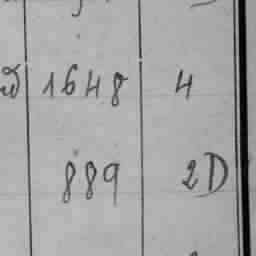 1648 4
889 2D